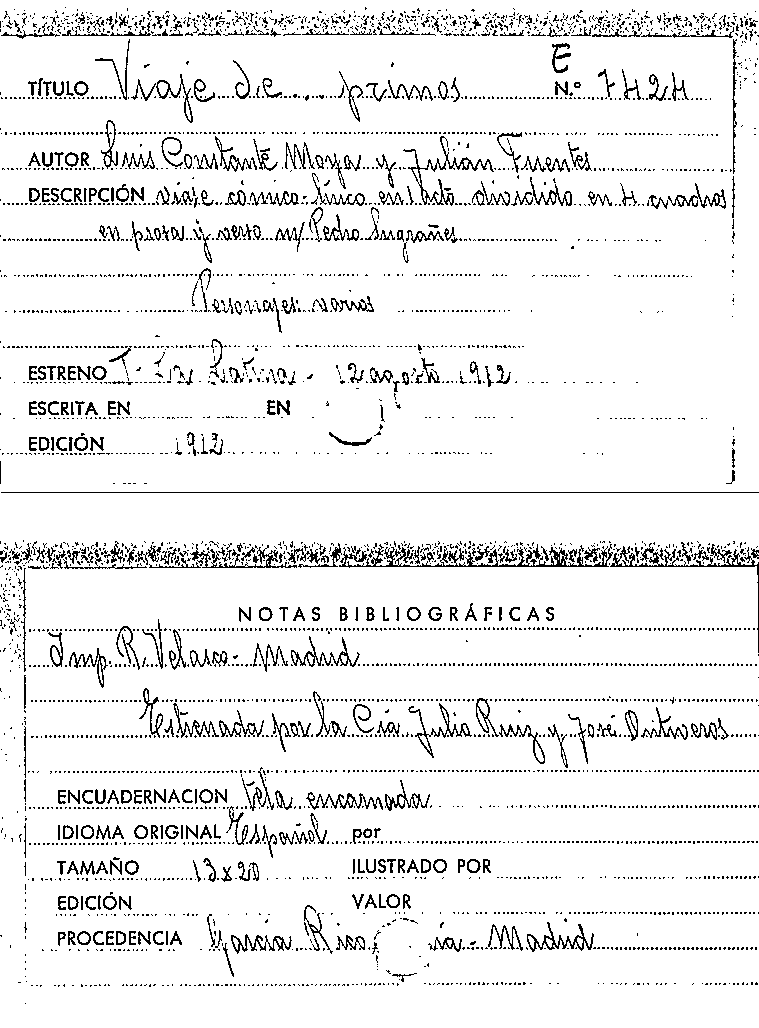 E
TÍTULO Viaje de... primos N.º 7424
AUTOR Luis Constante Moya y Julián Fuentes
DESCRIPCIÓN viaje cómico-lírico en 1 acto dividido en 4 cuadros
en prosa y verso m/ Pedro Sugrañes
Personajes: varios
ESTRENO T. La Latina - 12 agosto 1912
ESCRITA EN EN
EDICIÓN 1912
NOTAS BIBLIOGRÁFICAS
Imp. R. Velasco - Madrid
Estrenada por la Cía Julio Ruiz y José Ontiveros
ENCUADERNACION tela encarnada
IDIOMA ORIGINAL Español por
TAMAÑO 13x20 ILUSTRADO POR
EDICIÓN VALOR
PROCEDENCIA García Rico ía - Madrid